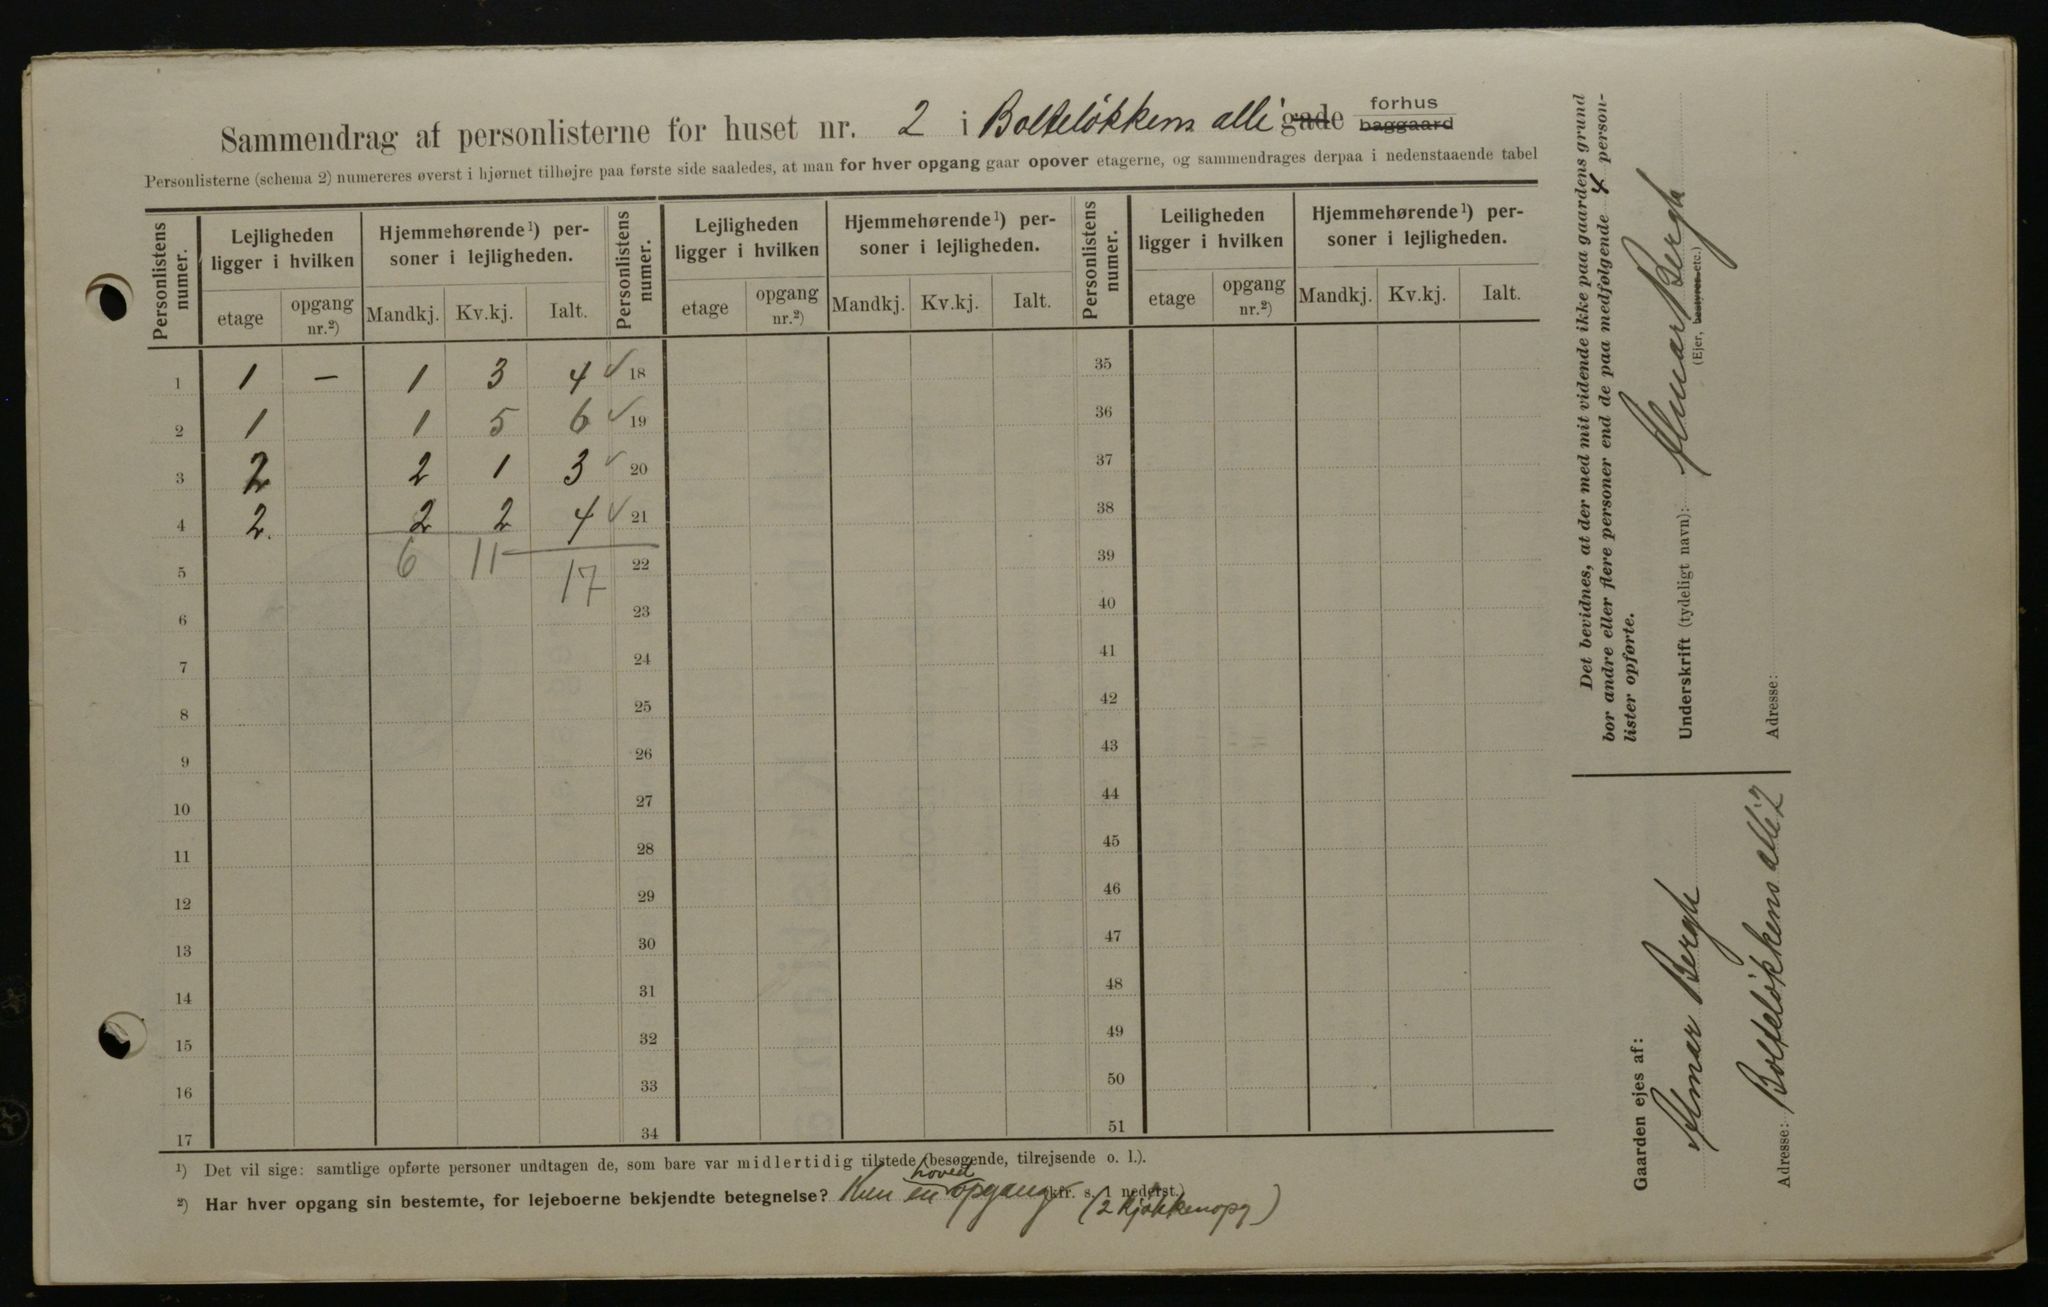 Sammendrag af personlisterne for huset nr. 2 i Bolteløkkens allé gade forhus baggaard
Personlisterne (schema 2) numereres øverst i hjørnet tilhøjre paa første side saaledes, at man for hver opgang gaar opover etagerne, og sammendrages derpaa i nedenstaaende tabel
Personlistens numer. Lejligheden ligger i hvilken Hjemmehørende ¹) personer i lejligheden. Personlistens numer. Lejligheden ligger i hvilken Hjemmehørende ¹) personer i lejligheden. Personlistens numer. Leiligheden ligger i hvilken Hjemmehørende ¹) personer i lejligheden.
etage opgang nr.²) Mandkj. Kv.kj. Ialt. etage opgang nr.²) Mandkj. Kv.kj. Ialt. etage opgang nr.²) Mandkj. Kv.kj. Ialt.
1 1 — 1 3 4 ✓ 18 35
2 1 1 5 6 ✓ 19 36
3 2 2 1 3 ✓ 20 37
4 2. 2 2 4 ✓ 21 38
5 6 11 17 22 39
6 23 40
7 24 41
8 25 42
9 26 43
10 27 44
11 28 45
12 29 46
13 30 47
14 31 48
15 32 49
16 33 50
17 34 51
¹) Det vil sige: samtlige opførte personer undtagen de, som bare var midlertidig tilstede (besøgende, tilrejsende o. l.).
²) Har hver opgang sin bestemte, for lejeboerne bekjendte betegnelse? (kfr. s. 1 nederst.) Kun en hovedopgang (2 kjøkkenopg)
Det bevidnes, at der med mit vidende ikke paa gaardens grund
bor andre eller flere personer end de paa medfølgende 4 person-
lister opførte.
Underskrift (tydeligt navn): Almar Bergh
(Ejer, bestyrer etc.)
Adresse:
Gaarden ejes af:
Almar Bergh
Adresse: Bolteløkkens allé 2